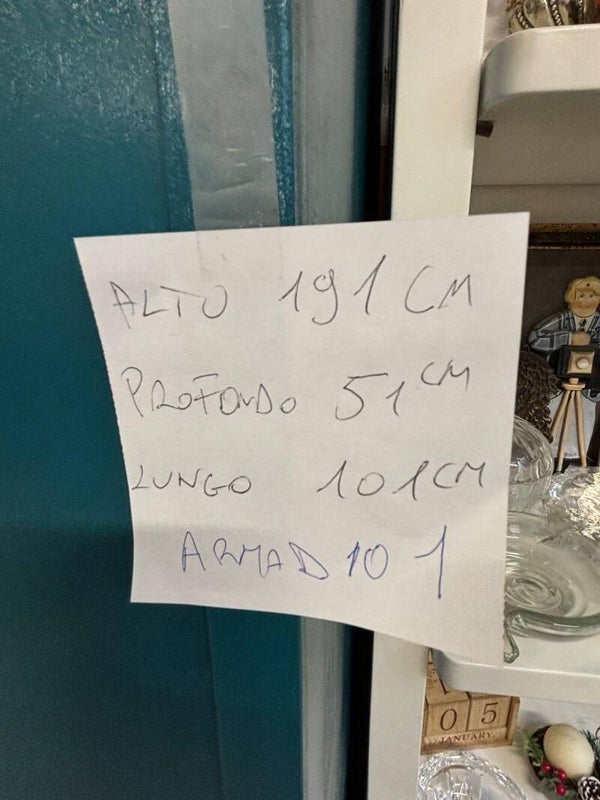 ALTO 191 CM
PROFONDO 51 CM
LUNGO 101 CM
ARMADIO 1
05
JANUARY